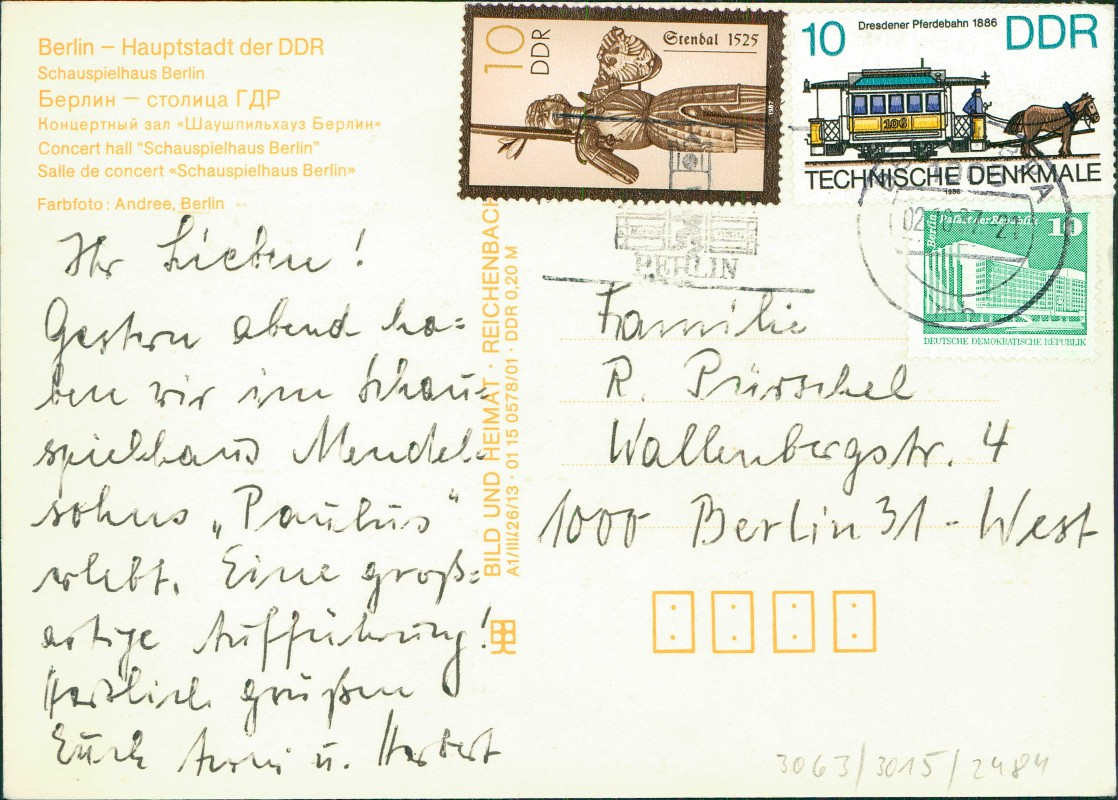 Berlin – Hauptstadt der DDR
Schauspielhaus Berlin
Берлин — столица ГДР
Концертный зал «Шаушпильхауз Берлин»
Concert hall "Schauspielhaus Berlin"
Salle de concert «Schauspielhaus Berlin»
Farbfoto: Andree, Berlin
Ihr Lieben!
Gestern abend ha=
ben wir im Schau=
spielhaus Mendel=
sohns „Paulus"
erlebt. Eine groß=
artige Aufführung!
Herzlich grüßen
Euch Anni u. Herbert
BILD UND HEIMAT · REICHENBACH
A1/III/26/13 · 01 15 0578/01 · DDR 0,20 M
10
DDR
Stendal 1525
10
Dresdener Pferdebahn 1886
DDR
106
TECHNISCHE DENKMALE
1986
BERLIN
Berlin
Palast der Republik
10
DEUTSCHE DEMOKRATISCHE REPUBLIK
Familie
R. Pürschel
Wallenbergstr. 4
1000 Berlin 31 - West
3063/3015/2484